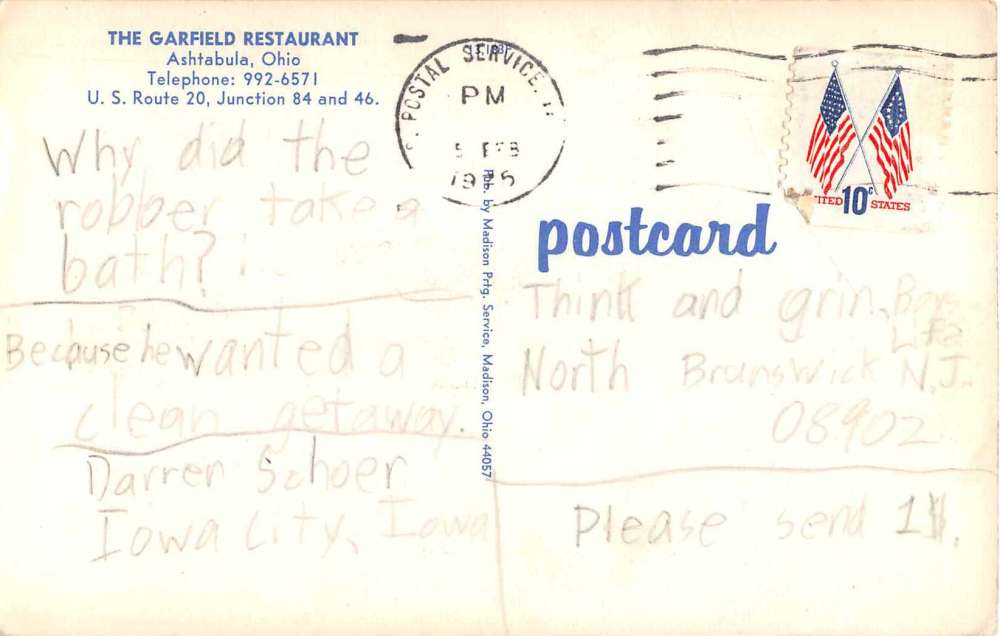 THE GARFIELD RESTAURANT
Ashtabula, Ohio
Telephone: 992-6571
U. S. Route 20, Junction 84 and 46.
POSTAL SERVICE
PM
FEB
Why did the
robber take a
bath?
Because he wanted a
clean getaway.
Darren Schoer
Iowa City, Iowa
Pub. by Madison Prtg. Service, Madison, Ohio 44057
10c
STATES
postcard
Think and grin, Boys
Life
North Brunswick N.J.
08902
Please send 1$.